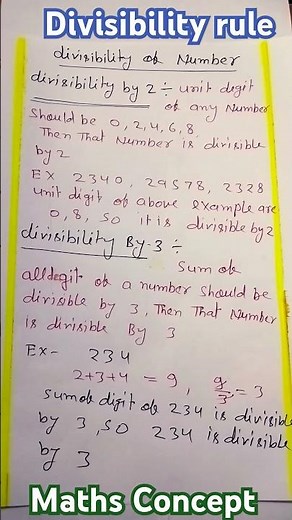 Divisibility rule
divisibility of Number
divisibility by 2 ÷ unit digit
of any Number
Should be 0, 2, 4, 6, 8,
Then That Number is divisible
by 2
EX 2340, 29578, 2328
unit digit of above example are
0, 8, so it is divisible by 2
divisibility By-3 ÷
Sum of
all degit of a number should be
divisible by 3, Then That Number
is divisible By 3
Ex- 234
2+3+4 = 9, 9/3 = 3
sum of digit of 234 is divisible
by 3, so 234 is divisible
by 3
Maths Concept